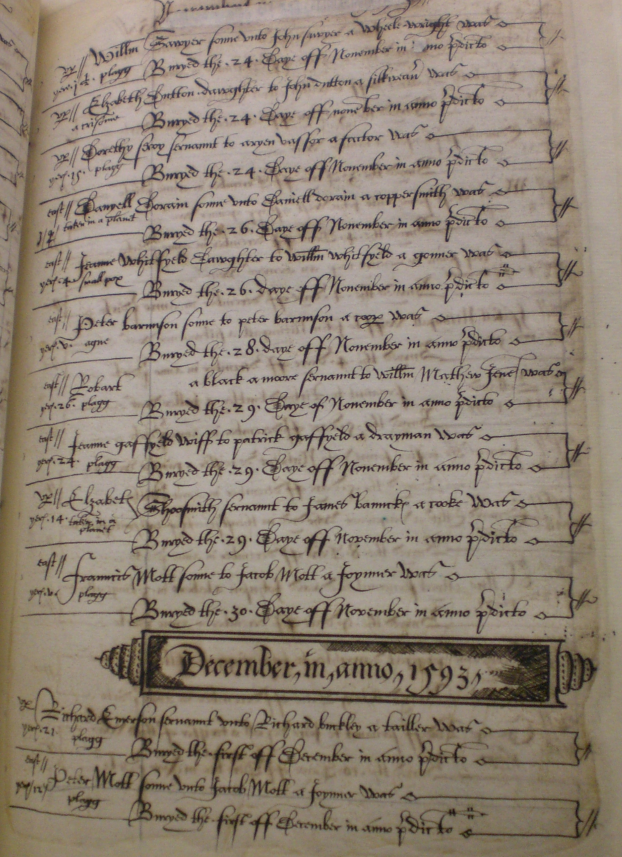 Willm Sawyer sonne vnto John sawyer a wheele wright was
yer 14 plagg Buryed the .24. Daye off November in anno p̄dicto
Elizabeth Dutton dawghter to John dutton a silkweavr was
a crisome Buryed the .24. Daye off november in anno p̄dicto
Dorethy servannt to aryen vasser a factor was
yer .15. plagg Buryed the .24. Daye off November in anno p̄dicto
east Danyell Dorain sonne vnto Daniell dorain a coppersmith was
taken in a planet Buryed the .26. Daye off November in anno p̄dicto
east Jeanne Whitfyeld Dawghter to willm whitfyeld a gonner was
yer .4. small pox Buryed the .26. daye off November in anno p̄dicto
east Peter barinson sonne to peter barinson a cooper was
ague Buryed the .28. daye off November in anno p̄dicto
east Robart a black a moore servannt to willm Mathew Jent was
yer 26 plagg Buryed the .29. Daye of November in anno p̄dicto
east Jeanne gaffyeld wiff to patrick gaffyeld a drayman was
yer .24. plagg Buryed the .29. Daye off November in anno p̄dicto
Elizabeth Shoosmith servannt to James a cooke was
yer .14. taken in a planet Buryed the .29. Daye off November in anno p̄dicto
east Frannces Mott sonne to Jacob Mott a Joynner was
plagg Buryed the .30. Daye off November in anno p̄dicto
December, in, anno, 1593,
Richard Emerson servannt vnto Richard buckley a tailler was
yer .21. plagg Buryed the first off December in anno p̄dicto
east Peter Mott sonne vnto Jacob Mott a Joynner was
plagg Buryed the first off December in anno p̄dicto